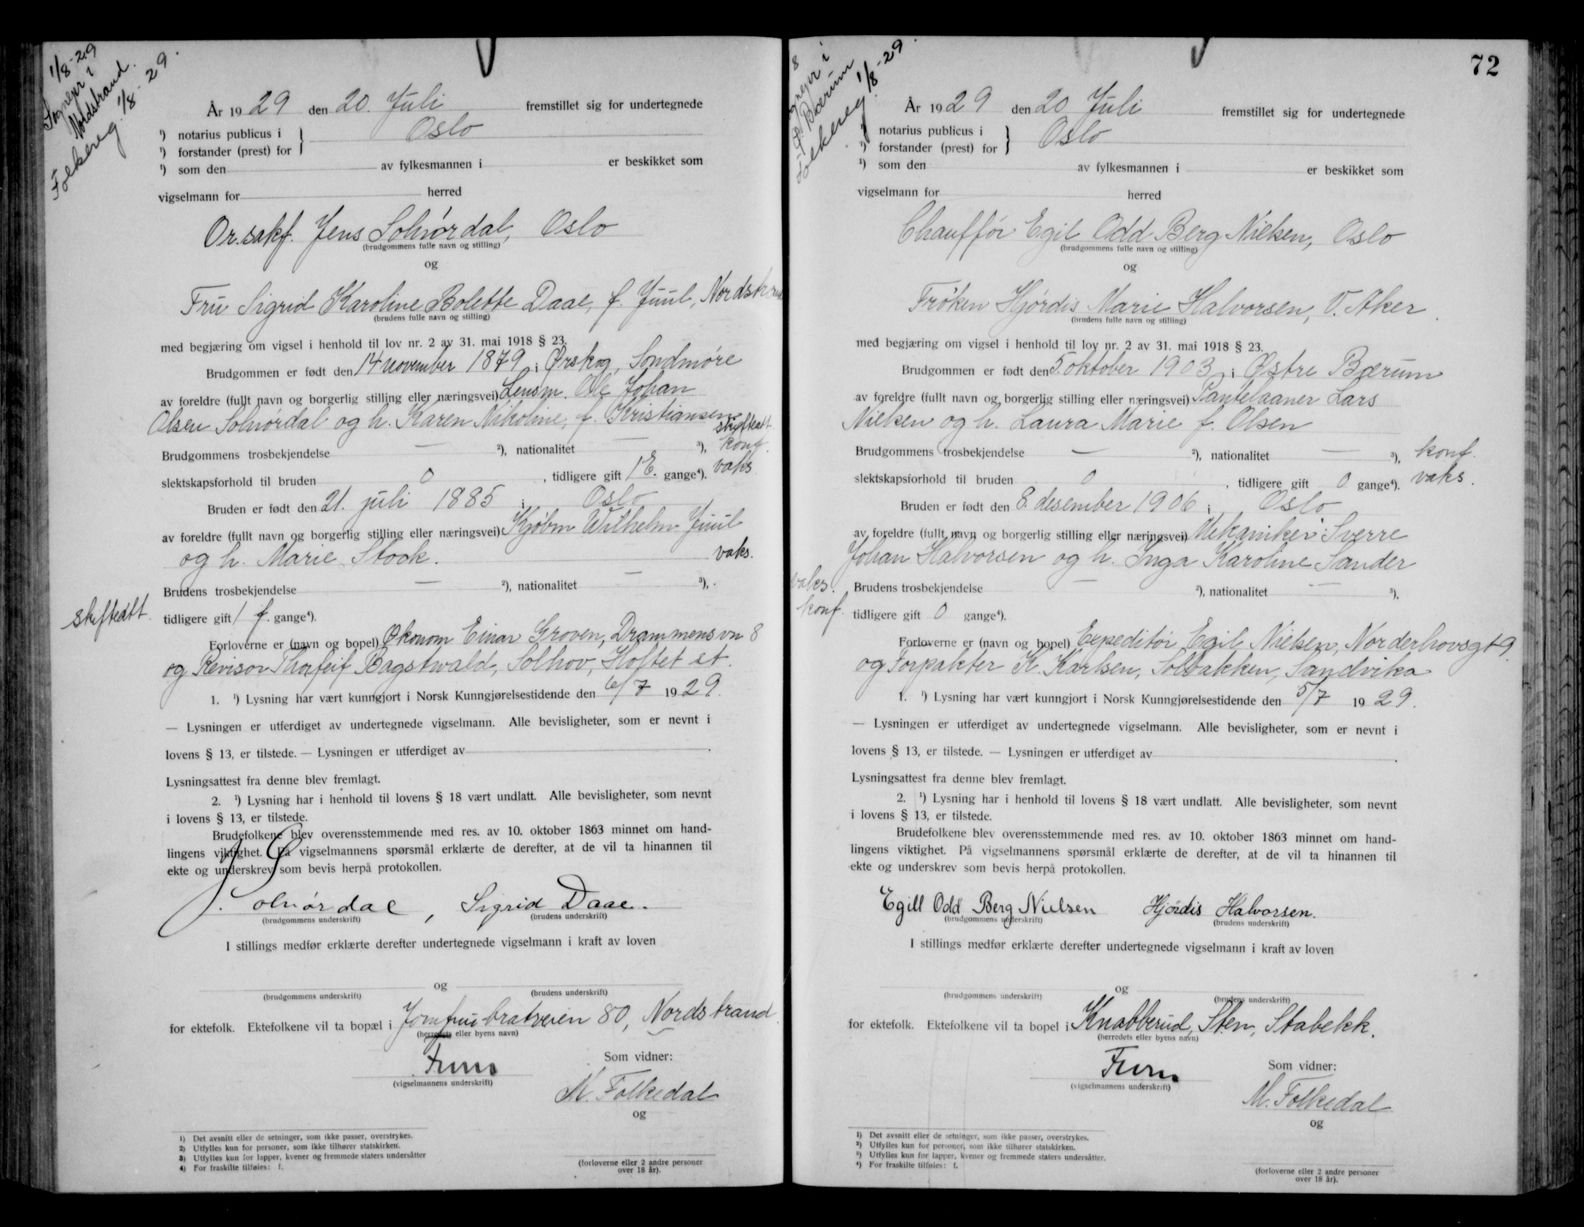 1/8-29
Sognepr i
Nordstrand.
Folkereg. 1/8-29.
År 1929 den 20. Juli fremstillet sig for undertegnede
¹) notarius publicus i } Oslo
¹) forstander (prest) for
¹) som den av fylkesmannen i er beskikket som
vigselmann for herred
Or.sakf. Jens Solnørdal, Oslo
(brudgommens fulle navn og stilling)
og
Fru Sigrid Karoline Bolette Daae, f. Juul, Nordstrand
(brudens fulle navn og stilling)
med begjæring om vigsel i henhold til lov nr. 2 av 31. mai 1918 § 23.
Brudgommen er født den 14 november 1879 i Ørskog, Søndmøre
av foreldre (fullt navn og borgerlig stilling eller næringsvei) Lensm. Ole Johan
Olsen Solnørdal og h. Karen Nikoline, f. Kristiansen
skifteatt.
Brudgommens trosbekjendelse — ²), nationalitet — ³), konf.
slektskapsforhold til bruden 0, tidligere gift 1 E. gange⁴). vaks
Bruden er født den 21. juli 1885 i Oslo
av foreldre (fullt navn og borgerlig stilling eller næringsvei) Kjøbm Wilhelm Juul
og h. Marie Stock. vaks.
Brudens trosbekjendelse — ²), nationalitet — ³).
skifteatt. tidligere gift 1 f. gange⁴).
Forloverne er (navn og bopel) Økonom Einar Groven, Drammensvn 8
og Revisor Thorleif Bagstwald, Solhov, Holtet st.
1. ¹) Lysning har vært kunngjort i Norsk Kunngjørelsestidende den 6/7 1929.
— Lysningen er utferdiget av undertegnede vigselmann. Alle bevisligheter, som er nevnt i
lovens § 13, er tilstede. — Lysningen er utferdiget av
Lysningsattest fra denne blev fremlagt.
2. ¹) Lysning har i henhold til lovens § 18 vært undlatt. Alle bevisligheter, som nevnt
i lovens § 13, er tilstede.
Brudefolkene blev overensstemmende med res. av 10. oktober 1863 minnet om hand-
lingens viktighet. På vigselmannens spørsmål erklærte de derefter, at de vil ta hinannen til
ekte og underskrev som bevis herpå protokollen.
J. Solnørdal, Sigrid Daae.
(brudgommens underskrift) (brudens underskrift)
I stillings medfør erklærte derefter undertegnede vigselmann i kraft av loven
og
(brudgommens underskrift) (brudens underskrift)
for ektefolk. Ektefolkene vil ta bopæl i Jomfrubratveien 80, Nordstrand
(herredets eller byens navn)
(vigselmannens underskrift)
Som vidner:
M. Folkedal
og
¹) Det avsnitt eller de setninger, som ikke passer, overstrykes.
²) Utfylles kun for personer, som ikke tilhører statskirken.
³) Utfylles kun for lapper, kvener og fremmede staters undersåtter
⁴) For fraskilte tilføies: f.
(forloverne eller 2 andre personer
over 18 år).
72
Bærum
Folkereg. 1/8-29.
År 1929 den 20 Juli fremstillet sig for undertegnede
¹) notarius publicus i } Oslo
¹) forstander (prest) for
¹) som den av fylkesmannen i er beskikket som
vigselmann for herred
Chauffør Egil Odd Berg Nielsen, Oslo
(brudgommens fulle navn og stilling)
og
Frøken Hjørdis Marie Halvorsen, V. Aker.
(brudens fulle navn og stilling)
med begjæring om vigsel i henhold til lov nr. 2 av 31. mai 1918 § 23.
Brudgommen er født den 5 oktober 1903 i Østre Bærum
av foreldre (fullt navn og borgerlig stilling eller næringsvei) Pantelaaner Lars
Nielsen og h. Laura Marie f. Olsen
Brudgommens trosbekjendelse — ²), nationalitet — ³), konf.
slektskapsforhold til bruden 0, tidligere gift 0 gange⁴). vaks.
Bruden er født den 8 desember 1906 i Oslo
av foreldre (fullt navn og borgerlig stilling eller næringsvei) Mekaniker Sverre
Johan Halvorsen og h. Inga Karoline Sander
vaks. Brudens trosbekjendelse — ²), nationalitet — ³).
konf. tidligere gift 0 gange⁴).
Forloverne er (navn og bopel) Expeditør Egil Nielsen, Norderhovsgt 9.
og Forpakter K. Karlsen, Solbakken, Sandvika
1. ¹) Lysning har vært kunngjort i Norsk Kunngjørelsestidende den 5/7 1929.
— Lysningen er utferdiget av undertegnede vigselmann. Alle bevisligheter, som er nevnt i
lovens § 13, er tilstede. — Lysningen er utferdiget av
Lysningsattest fra denne blev fremlagt.
2. ¹) Lysning har i henhold til lovens § 18 vært undlatt. Alle bevisligheter, som nevnt
i lovens § 13, er tilstede.
Brudefolkene blev overensstemmende med res. av 10. oktober 1863 minnet om hand-
lingens viktighet. På vigselmannens spørsmål erklærte de derefter, at de vil ta hinannen til
ekte og underskrev som bevis herpå protokollen.
Egill Odd Berg Nielsen Hjørdis Halvorsen.
(brudgommens underskrift) (brudens underskrift)
I stillings medfør erklærte derefter undertegnede vigselmann i kraft av loven
og
(brudgommens underskrift) (brudens underskrift)
for ektefolk. Ektefolkene vil ta bopel i Knabberud, Sten, Stabekk.
(herredets eller byens navn)
(vigselmannens underskrift)
Som vidner:
M. Folkedal
og
¹) Det avsnitt eller de setninger, som ikke passer, overstrykes.
²) Utfylles kun for personer, som ikke tilhører statskirken.
³) Utfylles kun for lapper, kvener og fremmede staters undersåtter.
⁴) For fraskilte tilføies: f.
(forloverne eller 2 andre personer
over 18 år).